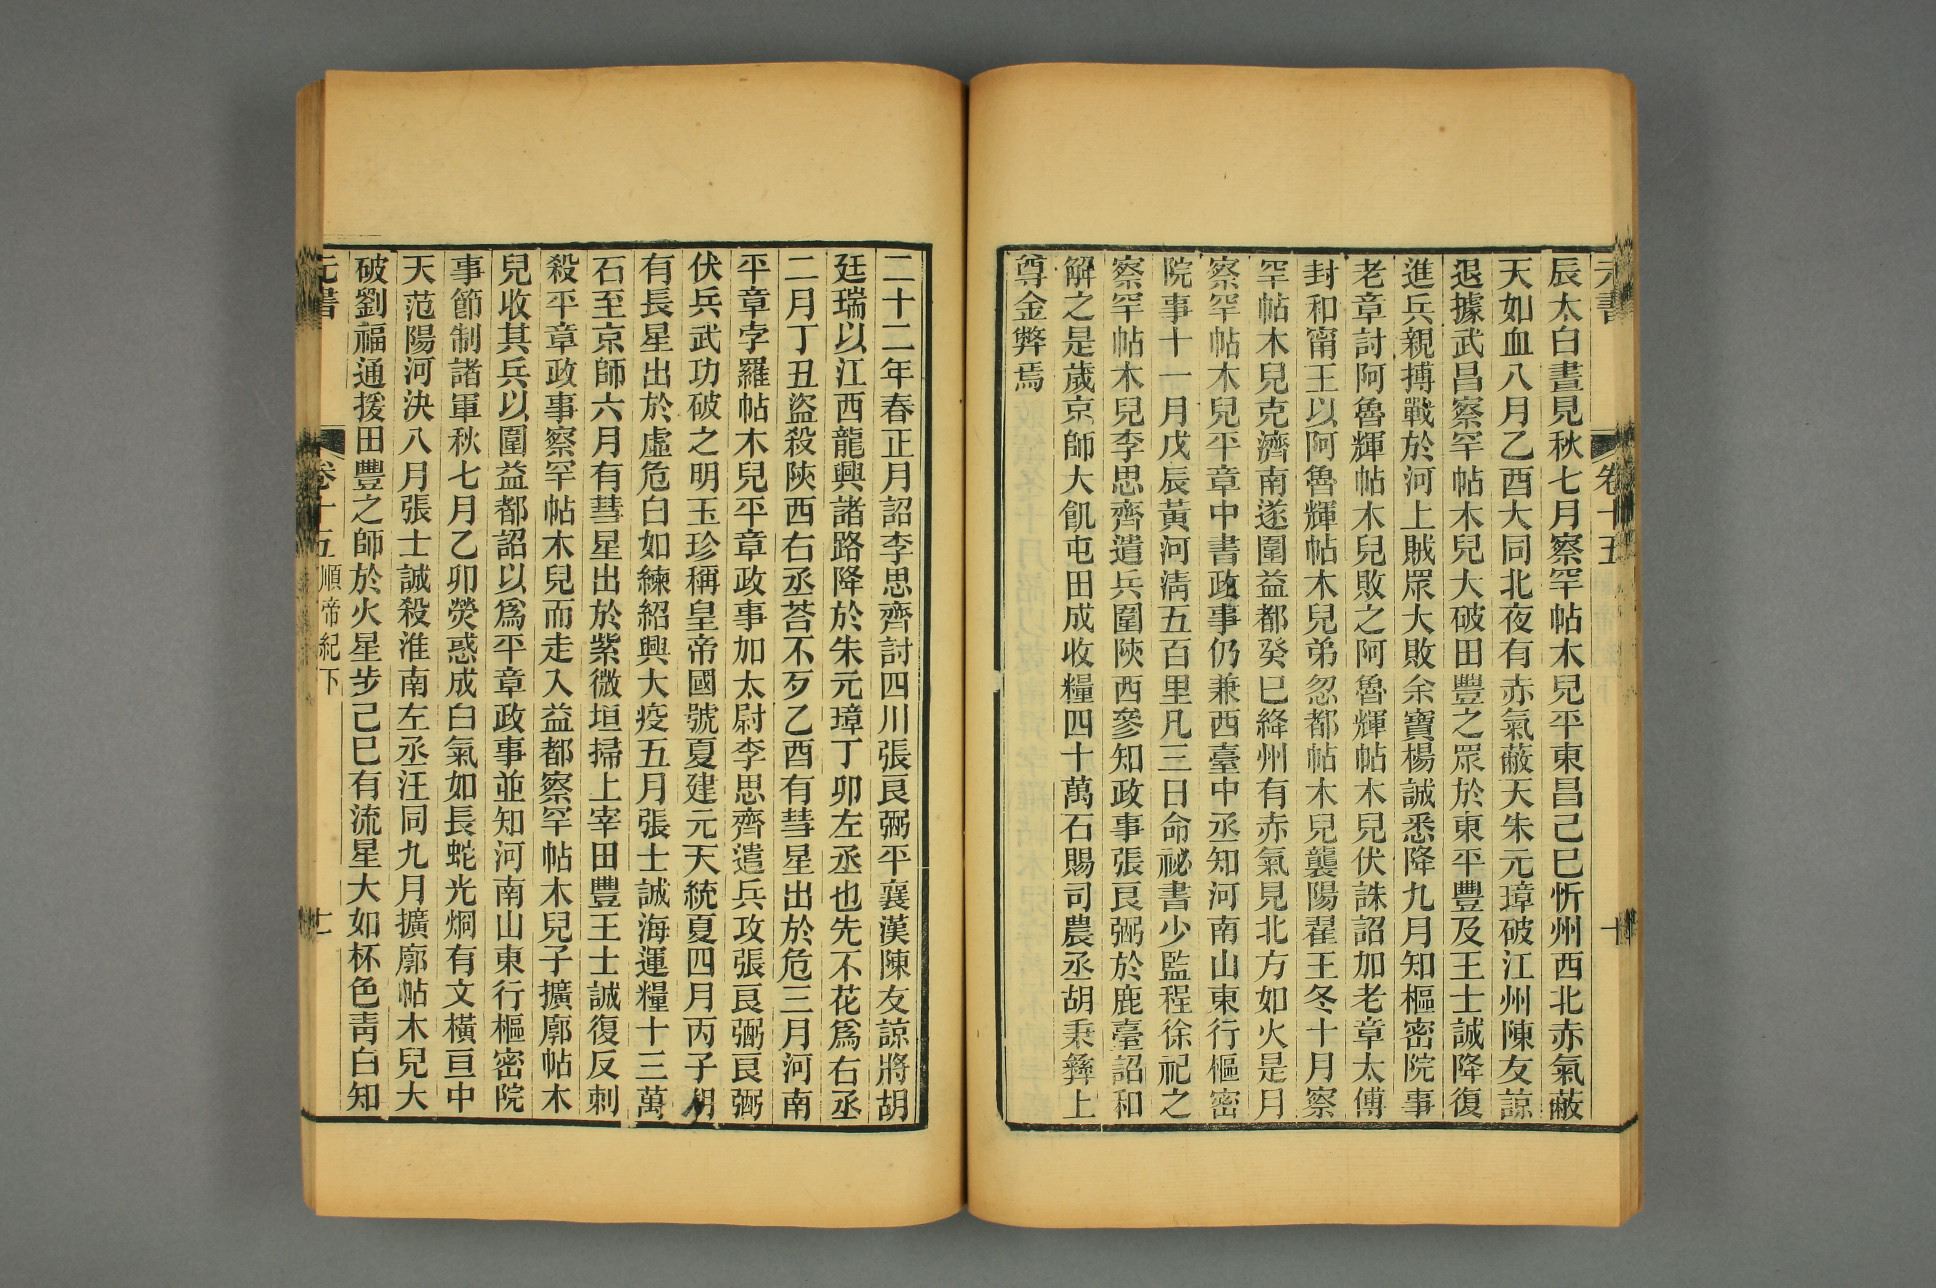 元書 卷十五 十
辰太白晝見秋七月察罕帖木兒平東昌己巳忻州西北赤氣蔽
天如血八月乙酉大同北夜有赤氣蔽天朱元璋破江州陳友諒
退據武昌察罕帖木兒大破田豐之眾於東平豐及王士誠降復
進兵親搏戰於河上賊眾大敗余寶楊誠悉降九月知樞密院事
老章討阿魯輝帖木兒敗之阿魯輝帖木兒伏誅詔加老章太傅
封和甯王以阿魯輝帖木兒弟忽都帖木兒襲陽翟王冬十月察
罕帖木兒克濟南遂圍益都癸巳絳州有赤氣見北方如火是月
察罕帖木兒平章中書政事仍兼西臺中丞知河南山東行樞密
院事十一月戊辰黃河清五百里凡三日命祕書少監程徐祀之
察罕帖木兒李思齊遣兵圍陝西參知政事張良弼於鹿臺詔和
解之是歲京師大飢屯田成收糧四十萬石賜司農丞胡秉彝上
尊金幣焉
二十二年春正月詔李思齊討四川張良弼平襄漢陳友諒將胡
廷瑞以江西龍興諸路降於朱元璋丁卯左丞也先不花爲右丞
二月丁丑盜殺陝西右丞荅不歹乙酉有彗星出於危三月河南
平章孛羅帖木兒平章政事加太尉李思齊遣兵攻張良弼良弼
伏兵武功破之明玉珍稱皇帝國號夏建元天統夏四月丙子朔
有長星出於虛危白如練紹興大疫五月張士誠海運糧十三萬
石至京師六月有彗星出於紫微垣掃上宰田豐王士誠復反刺
殺平章政事察罕帖木兒而走入益都察罕帖木兒子擴廓帖木
兒收其兵以圍益都詔以爲平章政事並知河南山東行樞密院
事節制諸軍秋七月乙卯熒惑成白氣如長蛇光烱有文橫亘中
天范陽河決八月張士誠殺淮南左丞汪同九月擴廓帖木兒大
破劉福通援田豐之師於火星步己巳有流星大如杯色青白知
元書 卷十五 順帝紀下 十一